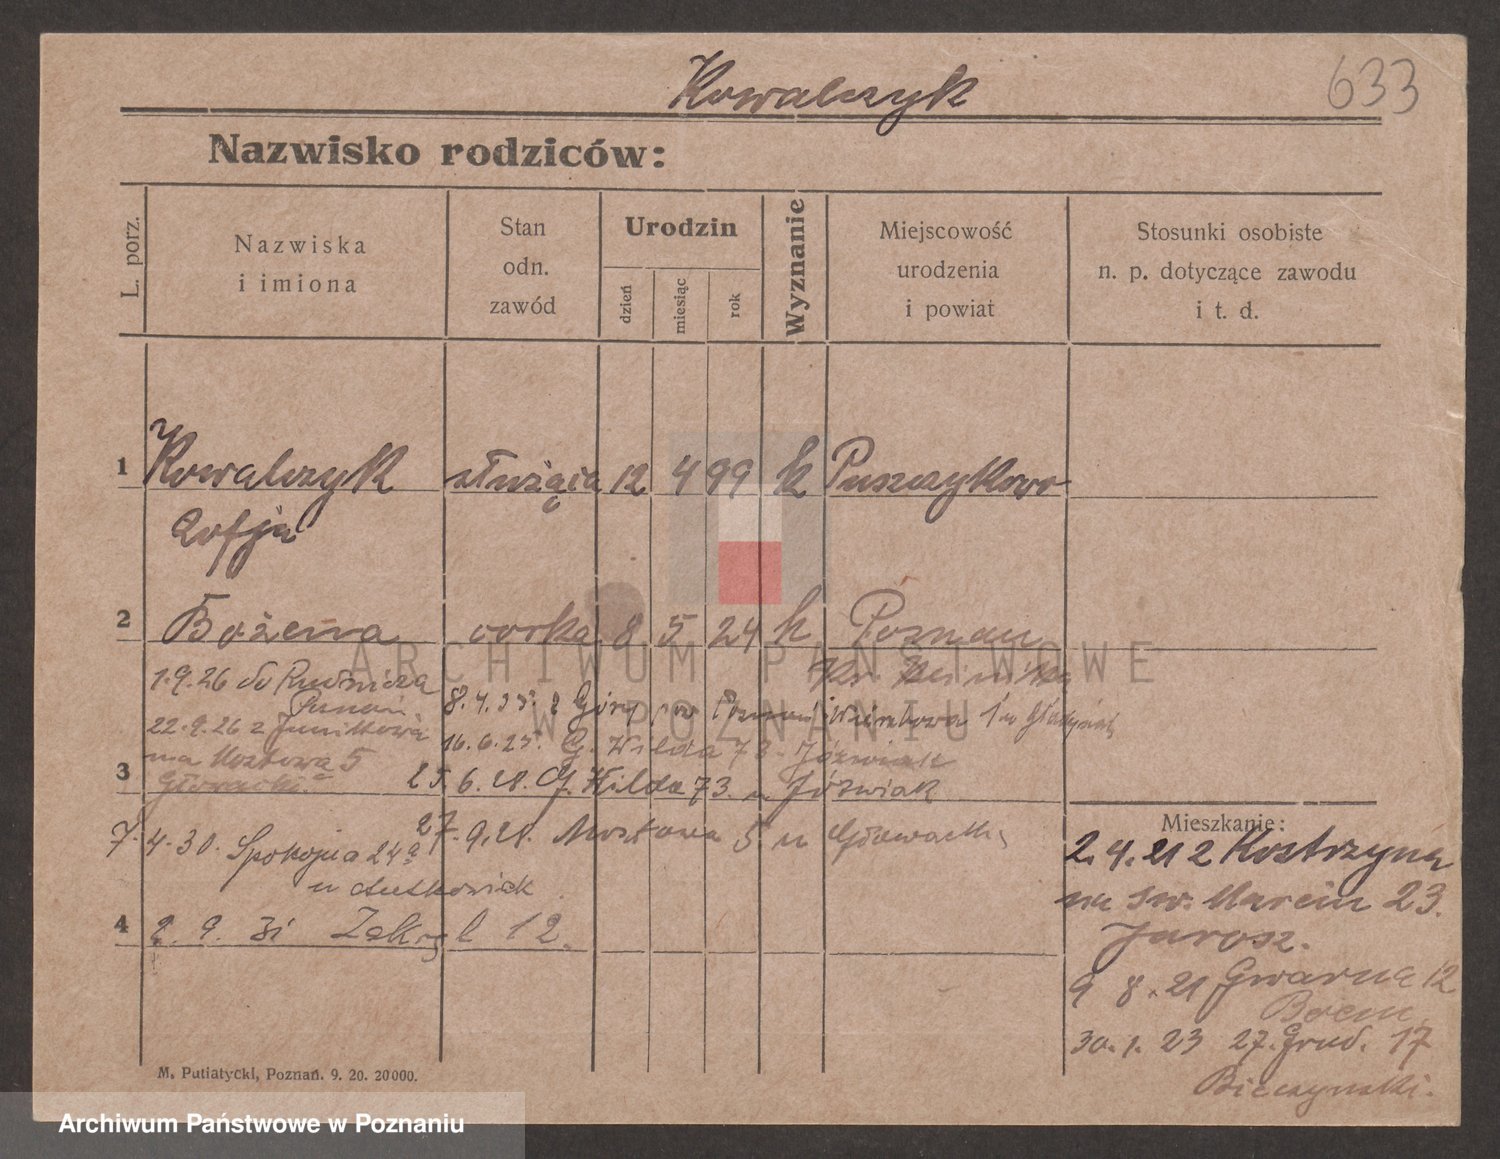 Kowalczyk
633
Nazwisko rodziców:
L. porz.
Nazwiska
i imiona
Stan
odn.
zawód
Urodzin
dzień
miesiąc
rok
Wyznanie
Miejscowość
urodzenia
i powiat
Stosunki osobiste
n. p. dotyczące zawodu
i t. d.
1 Kowalczyk służąca 12 4 99 k Puszczykowo
Zofja
2 Bożena córka 8 5 24 k Poznań
1.9.26 do
22.9.26 z Junikowa
na Mostowa 5
3
16.6.25. G. Wilda 73 Jóźwiak
25.6.28. G. Wilda 73 u Jóźwiak
27.9.28. Mostowa 5 u
7.4.30. Spokojna 24a
u
4 2. 9. 31 Zakręt 12.
Mieszkanie:
2.4.21 z Kostrzyna
na św. Marcin 23.
Jarosz.
9 8.21 Gwarna 12
30.1.23 27. Grud. 17
M. Putiatycki, Poznań. 9. 20. 20000.
ARCHIWUM PAŃSTWOWE
W POZNANIU
Archiwum Państwowe w Poznaniu